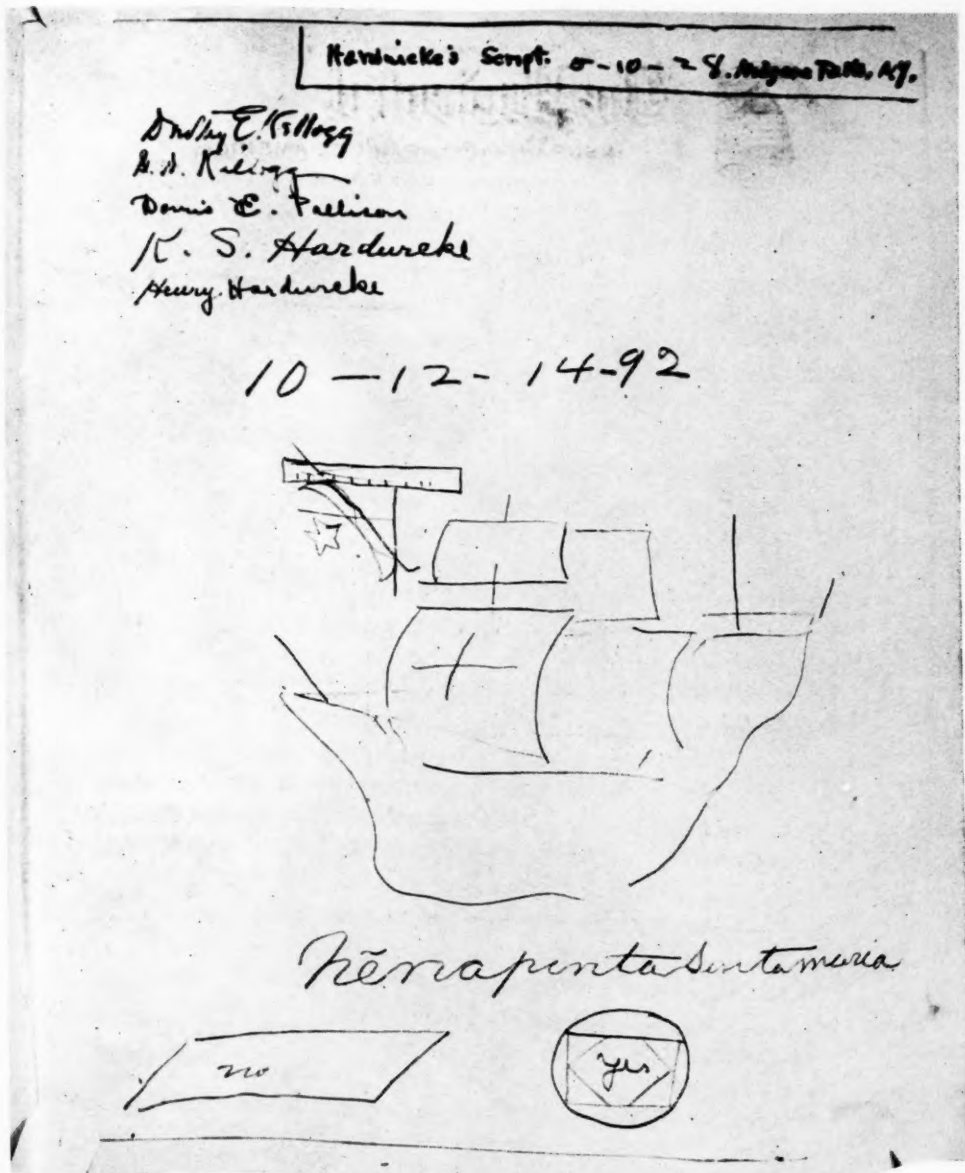 Hardwicke's Script. 5-10-28. Niagara Falls, N.Y.
Dudley E. Kellogg
Kellogg
Dennis E. Pallison
K. S. Hardwreke
Henry Hardwreke
10 - 12 - 14-92
Nēnapinta Santamaria
no
yes